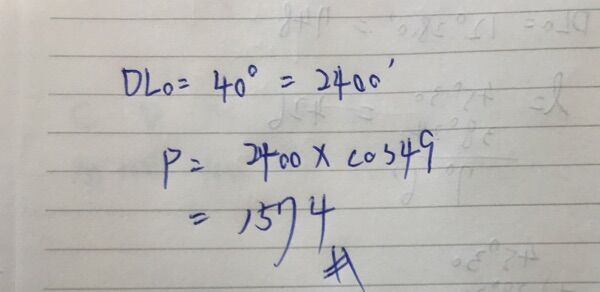 DLo = 40° = 2400'
P = 2400 × cos49
= 1574